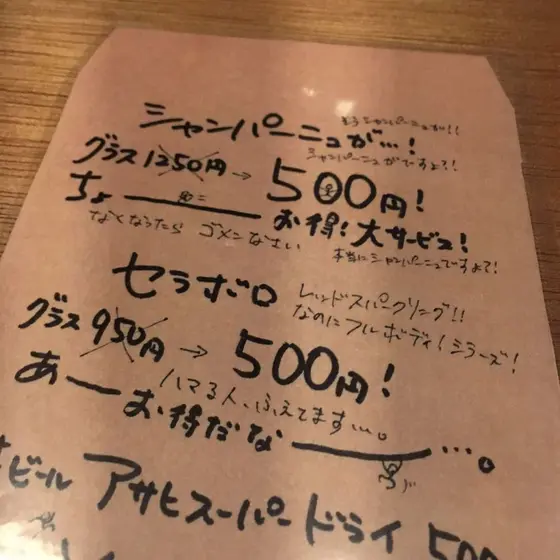 シャンパーニュが…!
シャンパーニュが!!
シャンパーニュがですよ?!
グラス 1250円 → 500円!
ちょーーお得!大サービス!
なくなったら ゴメンなさい
本当にシャンパーニュですよ?!
セラボロ
レッドスパークリング!!
なのに フルボディ!シラーズ!
グラス 950円 → 500円!
ハマる人、ふえてます…。
あーお得だなー…。
ビール アサヒスーパードライ 500